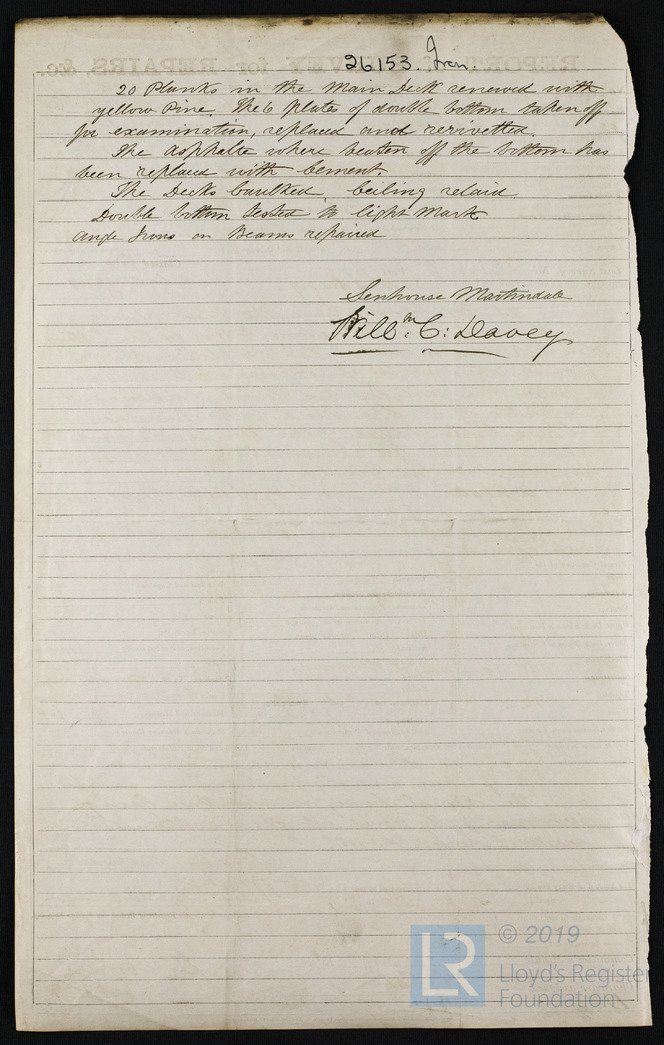 26153. Iron.
20 Planks in the Main Deck renewed with
yellow Pine. The 6 Plates of double bottom taken off
for examination, replaced and rerivetted.
The Asphalte where beaten off the bottom has
been replaced with Cement.
The Decks Caulked, Ceiling relaid
Double bottom tested to light Mark
Angle Irons on Beams repaired
Senhouse Martindale
Willm: C: Davey
© 2019
LR
Lloyd's Register
Foundation